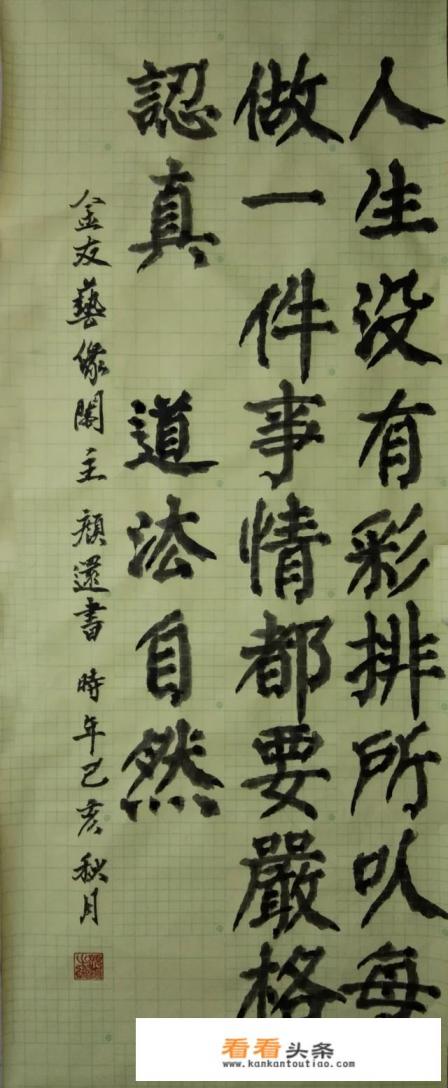 人生没有彩排所以每
做一件事情都要嚴格
認真 道法自然
金友藝缘閣主 顏還書 時年己亥秋月
看看头条
www.kankantoutiao.com